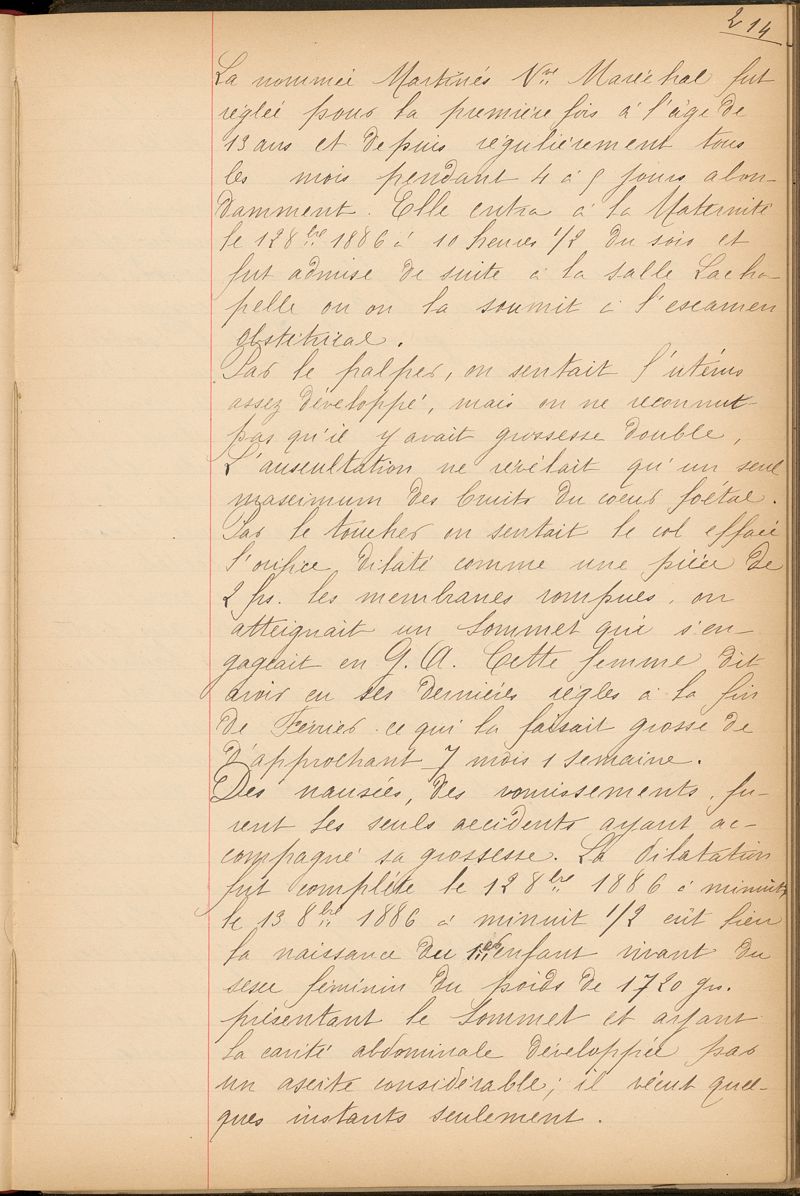 214
La nommée Martinés Vve Maréchal fut
réglée pour la première fois à l'âge de
13 ans et depuis régulièrement tous
les mois pendant 4 à 5 jours abon-
damment. Elle entra à la Maternité
le 12 8bre 1886 à 10 heures 1/2 du soir et
fut admise de suite à la salle Lacha-
pelle où on la soumit à l'examen
obstétrical.
Par le palper, on sentait l'utérus
assez développé, mais on ne reconnut
pas qu'il y avait grossesse double,
L'auscultation ne révélait qu'un seul
maximum des bruits du coeur foétal.
Par le toucher on sentait le col effacé
l'orifice dilaté comme une pièce de
2 frs. les membranes rompues, on
atteignait un Sommet qui s'en-
gageait en G. A. Cette femme dit
avoir eu ses dernières règles à la fin
de Février ce qui la faisait grosse de
d'approchant 7 mois 1 semaine.
Des nausées, des vomissements, fu-
rent les seuls accidents ayant ac-
compagné sa grossesse. La dilatation
fut complète le 12 8bre 1886 à minuit,
le 13 8bre 1886 à minuit 1/2 eût lieu
la naissance du 1er enfant vivant du
sexe féminin du poids de 1720 grs.
présentant le Sommet et ayant
la cavité abdominale développée par
un ascite considérable; il vécut quel-
ques instants seulement.